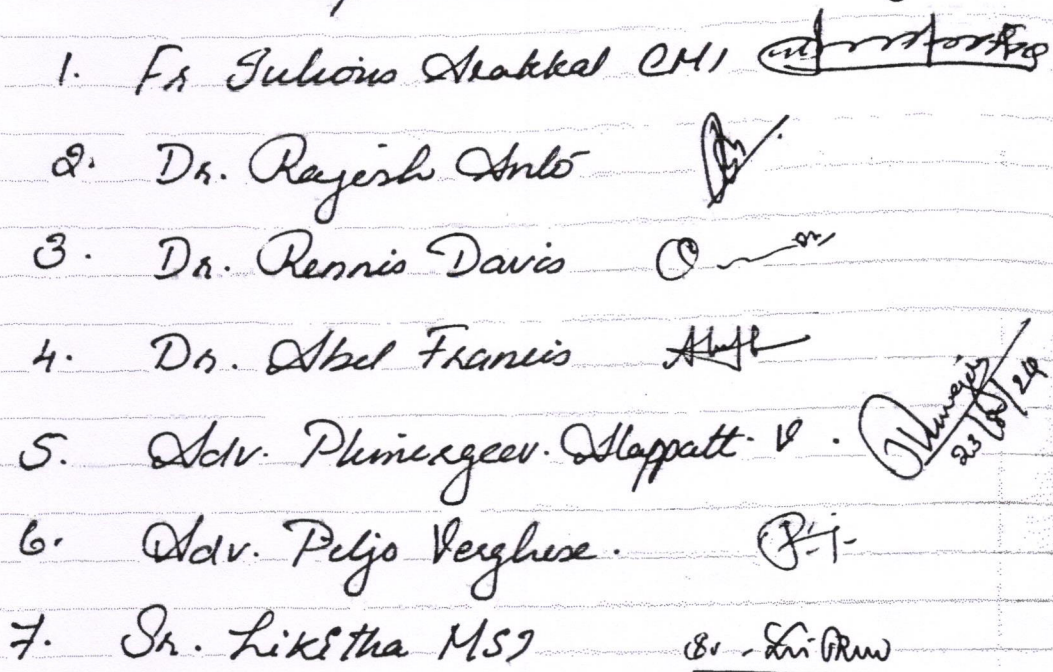 1. Fr Julious Arakkal CMI
2. Dr. Rajesh Anto
3. Dr. Rennis Davis
4. Dr. Abel Francis
5. Adv. Alappatt. V. 23/8/24
6. Adv. Peljo Verghese.
7. Sr. Likitha MSJ Sr.